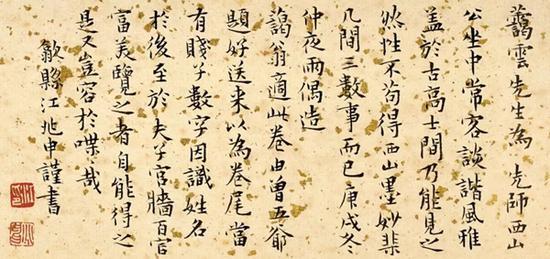 藹雲先生為 先師西山
公坐中常客談諧風雅
蓋於古高士間乃能見之
然性不苟得西山墨妙棐
几間三數事而已庚戌冬
仲夜雨偶造
藹翁適此卷由曾五爺
題好送来以為卷尾當
有賤子數字因識姓名
於後至於夫子宮牆百官
富美覽之者自能得之
是又豈容於喋々哉
歙縣江兆申謹書